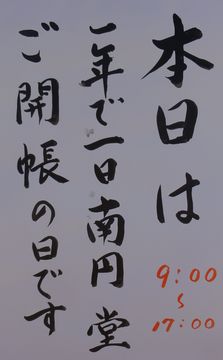 本日は
9:00
~
17:00
一年で一日南円堂
ご開帳の日です